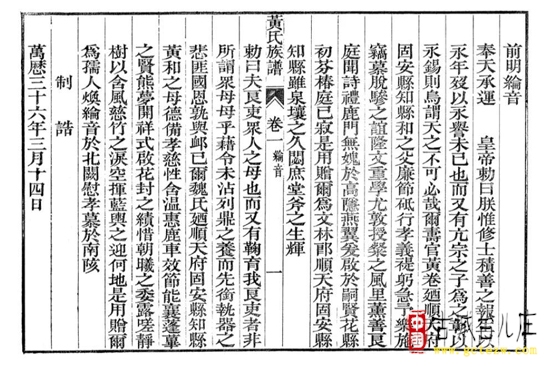 前明綸音
奉天承運　皇帝勅曰朕惟修士積善之報
永年歿以永譽未已也而又有亢宗之子為之
永錫則烏謂天之不可必哉爾壽官黃卷廼順府
固安縣知縣和之父廉節砥行孝義禔躬急予樂施
竊慕脫驂之誼隆文重學尤敦授粲之風里薰善良
庭開詩禮鹿門無媿於高隱燕翼爰啟於嗣賢花縣
初芬椿庭已寂是用贈爾為文林郎順天府固安縣
知縣雖泉壤之久閟庶堂斧之生輝
勅曰夫良吏眾人之母也而又有鞠育我良吏者非
所謂眾母母乎藉令未沾列鼎之養而先銜執器之
悲匪國恩孰與卹已爾魏氏廼順天府固安縣知縣
黃和之母德備孝慈性含溫惠鹿車效節能襄蓬蓽
之賢熊夢開祥式啟花封之績惜朝曦之委露嗟靜
樹以含風慈竹之淚空揮藍輿之迎何地是用贈爾
為孺人煥綸音於北闕慰孝墓於南陔
制誥
萬曆三十六年三月十四日
黃氏族譜
卷一
綸音
一
中国